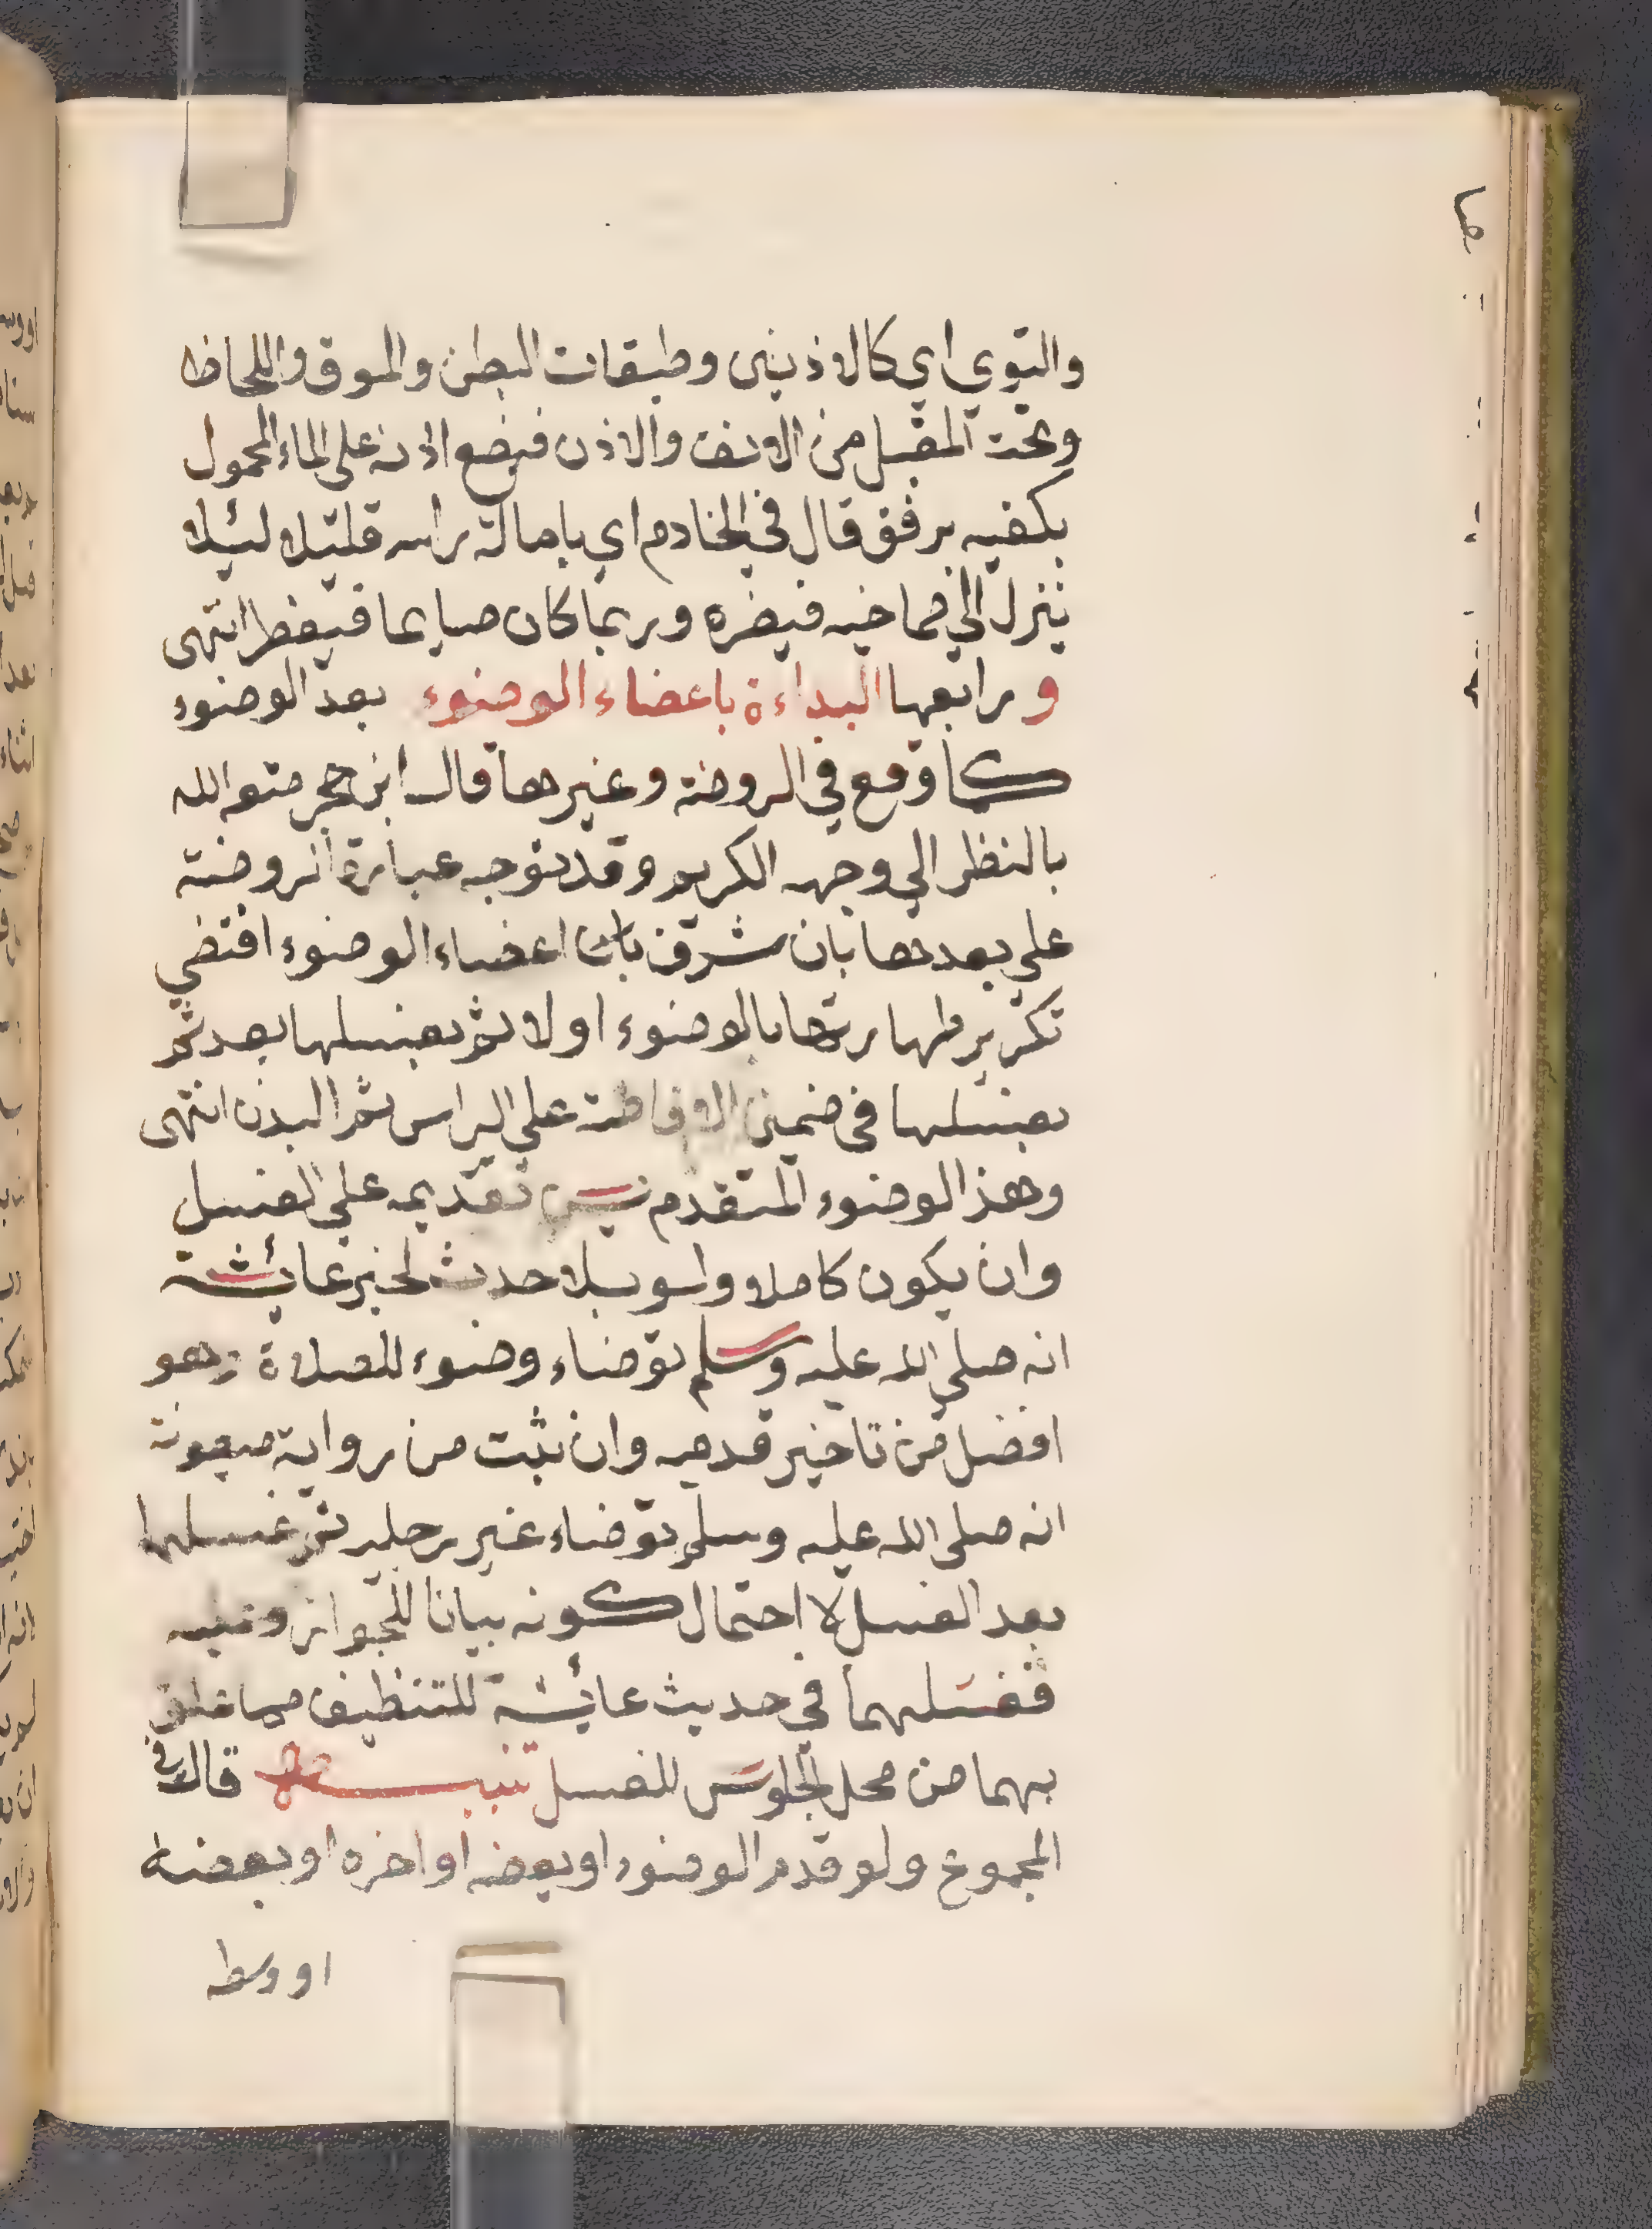 والتوي اي كالاذنين وطبقات البطن والموق واللحاظ
وتحت المقبل من الانف والاذن فيضع اذنه على الماء المحمول
بكفيه برفق قال في الخادم اي باماله راسه قليلا ليلا
ينزل الي صماخيه فيضره وربما كان صايما فيفطر انتهى
ورابعها البداءة باعضاء الوضوء بعد الوضوء
كما وقع في الروضة وغيرها قال ابن حجر متعه الله
بالنظر الي وجهه الكريم وقد توجه عبارة الروضة
علي بعدها بان شرف اعضاء الوضوء اقتضي
تكرير طهارتها بالوضوء اولا ثم بغسلها بعد ثم
بغسلها في ضمن الافاضة علي الراس ثم البدن انتهى
وهذ الوضوء المتقدم يسن تقديمه علي الغسل
وان يكون كاملا ولو بلا حدث لخبر عائشة
انه صلي الله عليه وسلم توضاء وضوء للصلاة وهو
افضل من تاخير قدميه وان ثبت من رواية ميمونة
انه صلى الله عليه وسلم توضاء غير رجليه ثم غسلهما
بعد الغسل لا احتمال كونه بيانا للجواز
فغسلهما في حديث عائشة للتنظيف مما علق
بهما من محل الجلوس للغسل تنبيه قال في
المجموع ولو قدم الوضوء او بعضه او اخره او بعضه
او وسطه